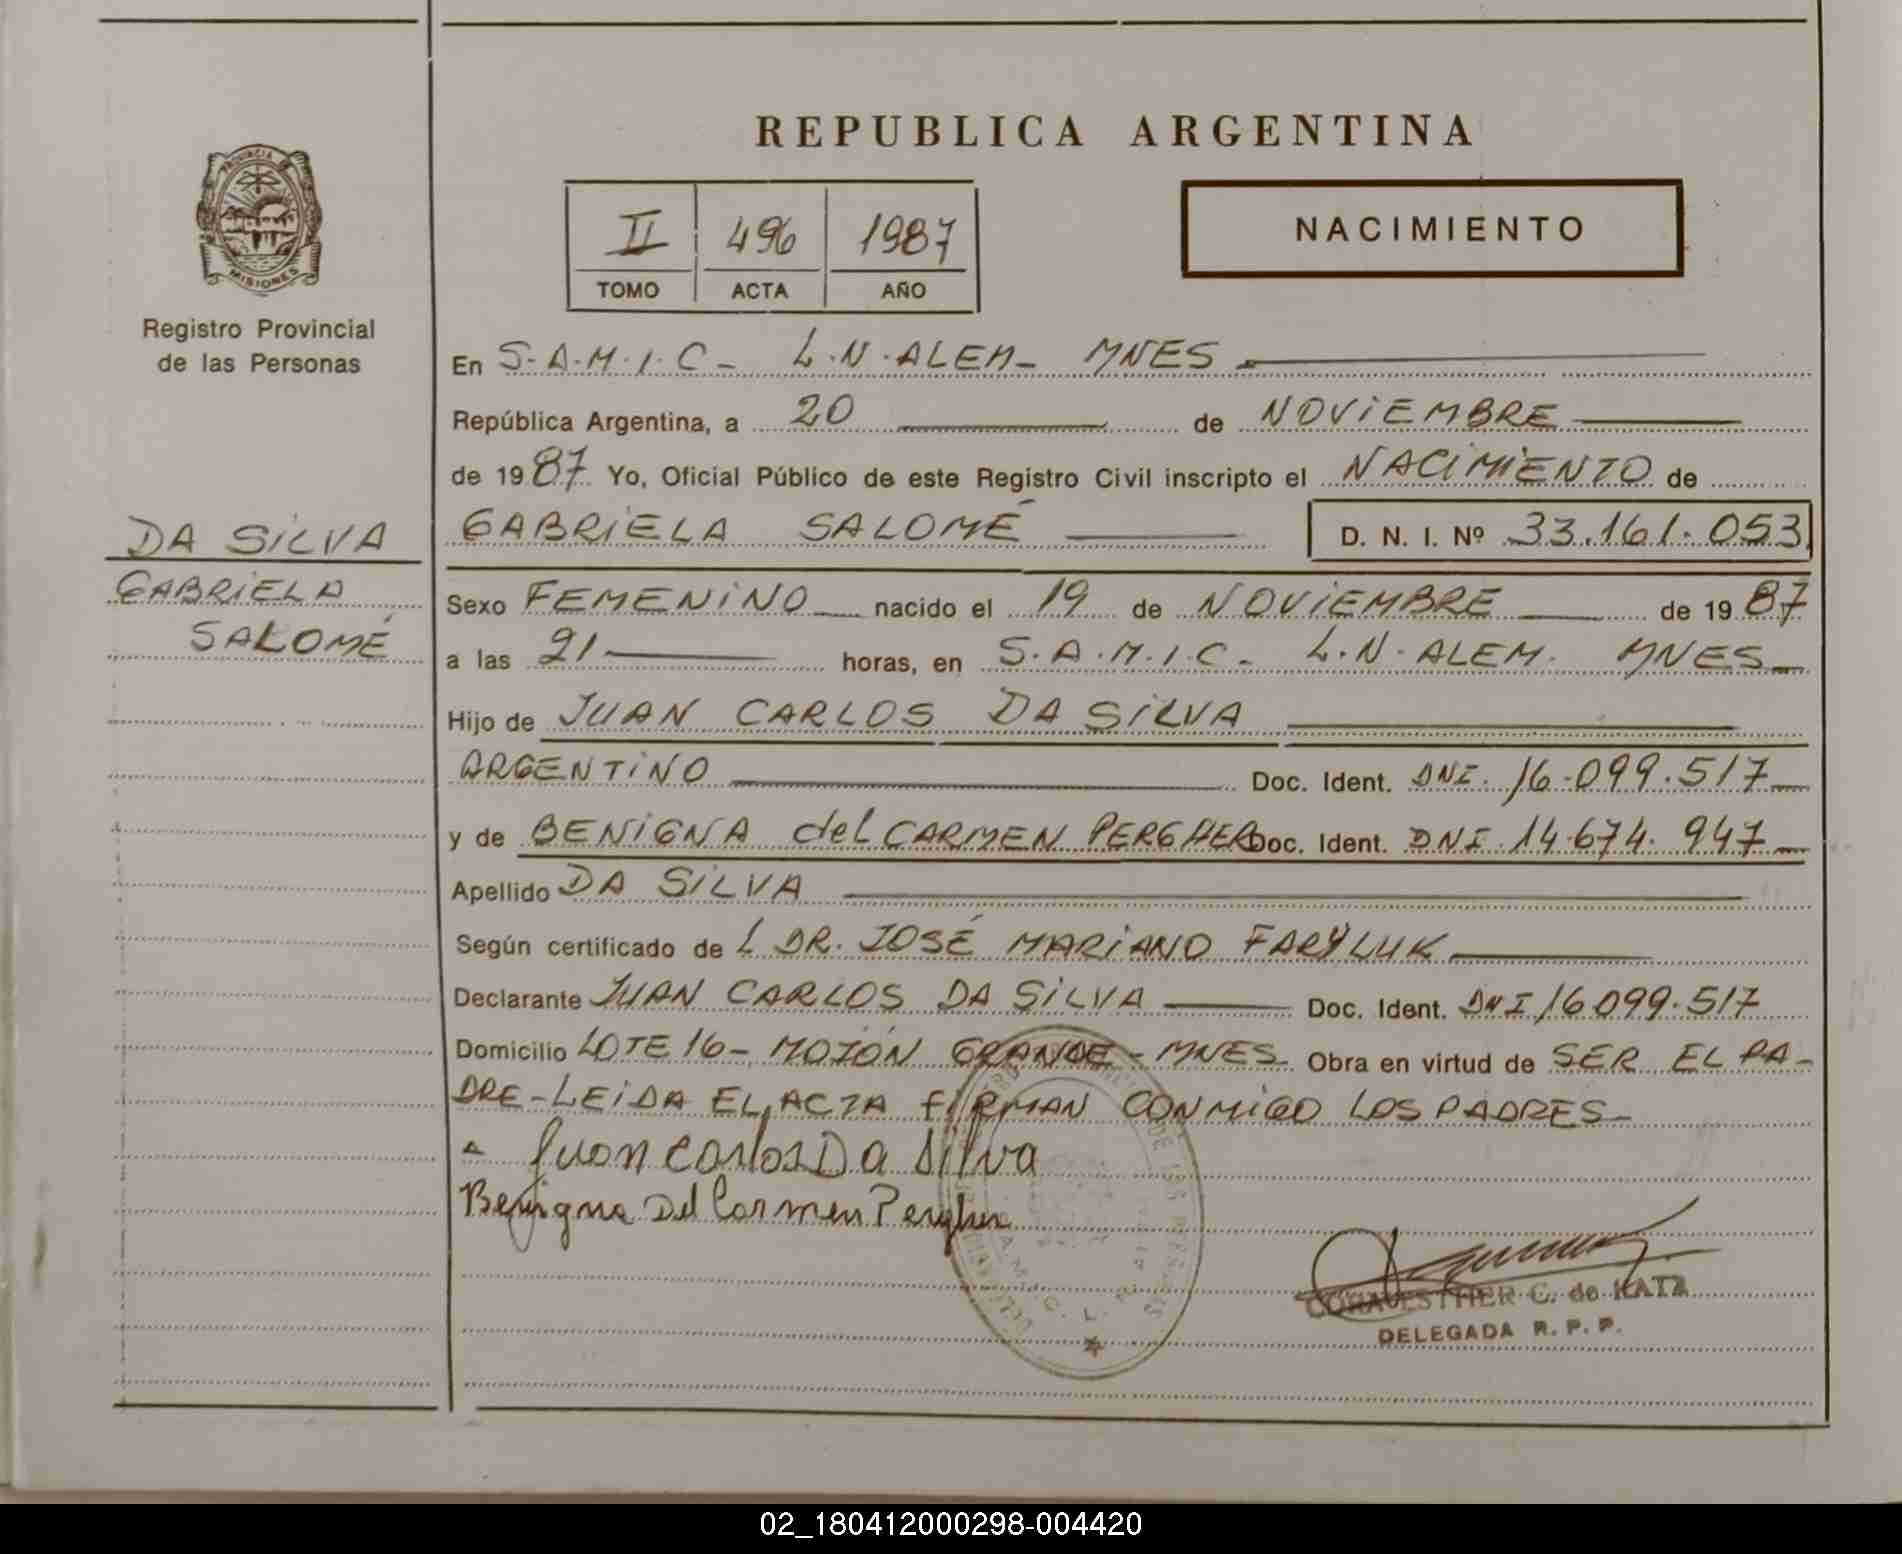 REPUBLICA ARGENTINA
PROVINCIA DE
MISIONES
Registro Provincial
de las Personas
II 496 1987
TOMO ACTA AÑO
NACIMIENTO
En S.A.M.I.C- L.N.ALEM- MNES
República Argentina, a 20 de NOVIEMBRE
de 1987 Yo, Oficial Público de este Registro Civil inscripto el NACIMIENTO de
DA SILVA
GABRIELA
SALOMÉ
GABRIELA SALOMÉ D. N. I. Nº 33.161.053
Sexo FEMENINO nacido el 19 de NOVIEMBRE de 1987
a las 21 horas, en S.A.M.I.C- L.N.ALEM. MNES-
Hijo de JUAN CARLOS DA SILVA
ARGENTINO Doc. Ident. DNI. 16.099.517
y de BENIGNA del CARMEN PERGHER Doc. Ident. DNI 14.674.947
Apellido DA SILVA
Según certificado de L DR. JOSÉ MARIANO FARYLUK
Declarante JUAN CARLOS DA SILVA Doc. Ident. DNI 16099.517
Domicilio LOTE 16- MOJÓN GRANDE - MNES- Obra en virtud de SER EL PA-
DRE-LEIDA EL ACTA FIRMAN CONMIGO LOS PADRES-
Juan Carlos Da Silva
Benigna Del Carmen Pergher
CORA ESTHER C. de KATZ
DELEGADA R. P. P.
02_180412000298-004420